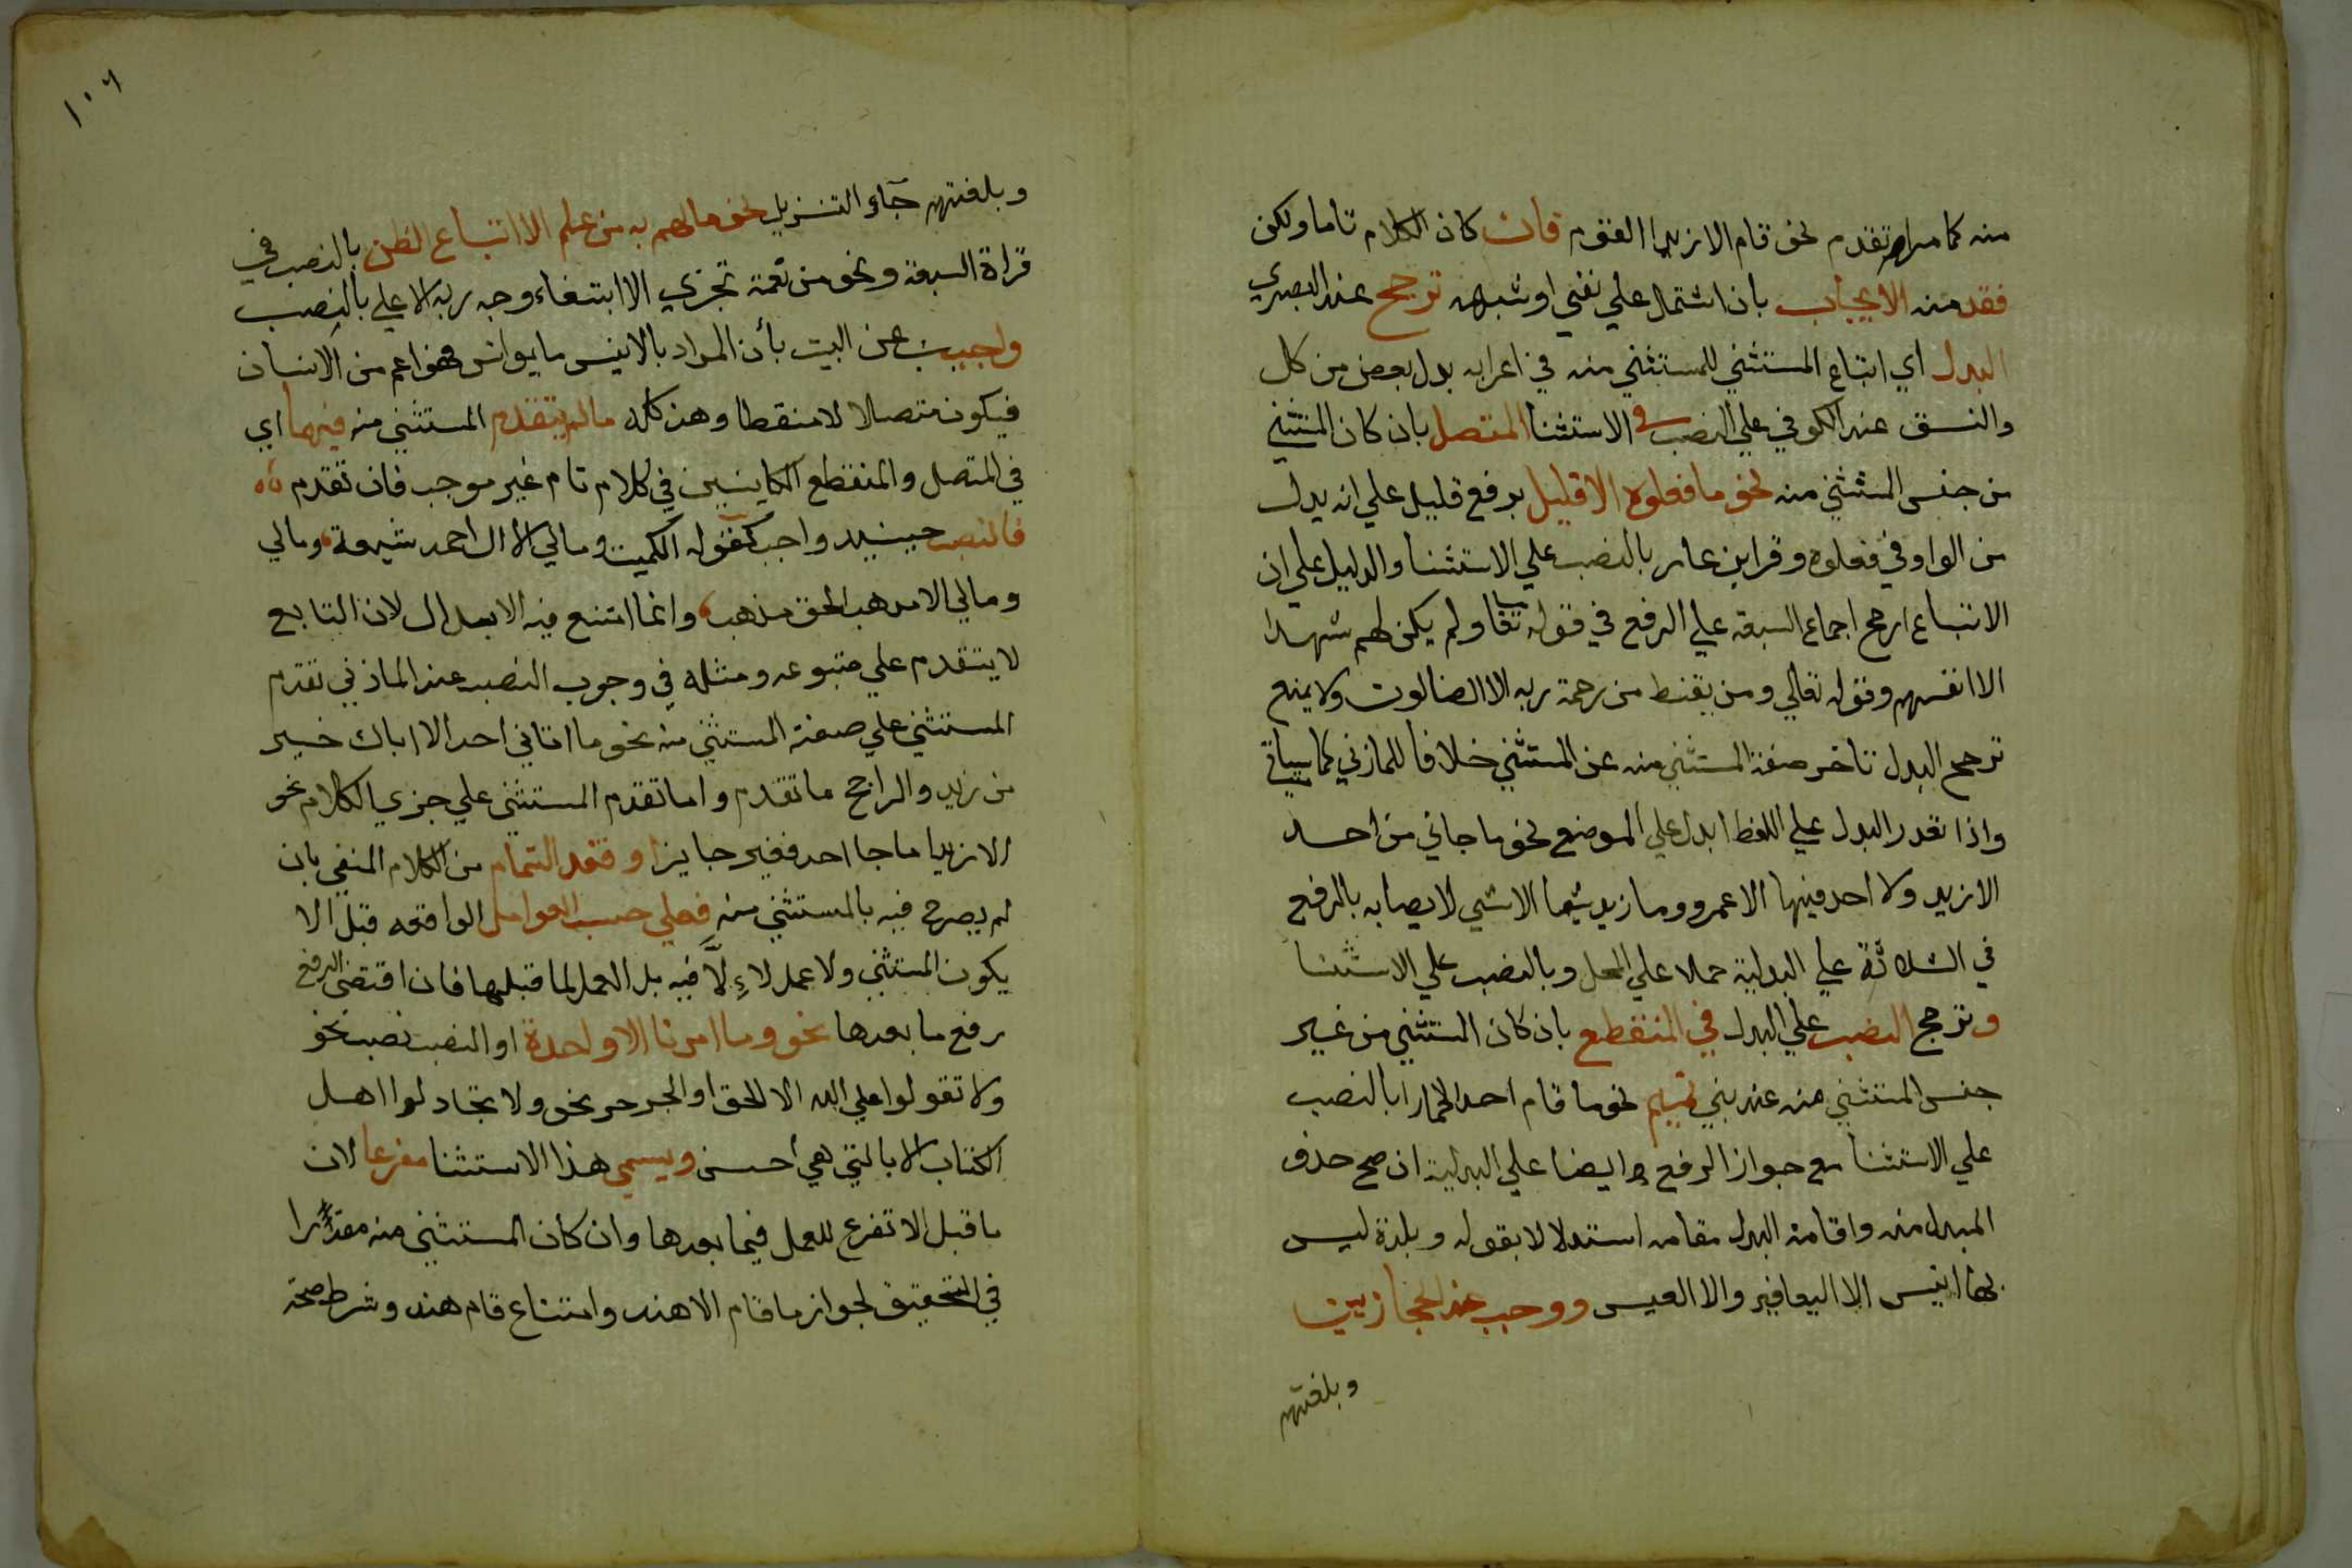 منه كما مر ام تقدم نحو قام الا زيدا القوم فان كان الكلام تاما ولكن
فقد منه الايجاب بان اشتمل علي نفي او شبهه ترجح عند البصري
البدل اي اتباع المستثني للمستثني منه في اعرابه بدل بعض من كل
والنسق عند الكوفي علي النصب في الاستثنا المتصل بان كان المستثني
من جنس المستثني منه نحو ما فعلوه الا قليل برفع قليل علي انه بدل
من الواو في فعلوه وقرا ابن عامر بالنصب علي الاستثنا والدليل علي ان
الاتباع ارجح اجماع السبعة علي الرفع في قوله تعا ولم يكن لهم شهدا
الا انفسهم وقوله تعالي ومن يقنط من رحمة ربه الا الضالون ولا يمنع
ترجح البدل تاخر صفة المستثني منه عن المستثني خلافا للمازني كما سياتي
واذا تعذر البدل علي اللفظ ابدل علي الموضع نحو ما جاني من احد
الا زيد ولا احد فيها الا عمرو وما زيد شيا الا شي لا يعبا به بالرفع
في الثلاثة علي البدلية حملا علي المحل وبالنصب علي الاستثنا
وترجح النصب علي البدل في المنقطع بان كان المستثني من غير
جنس المستثني منه عند بني تميم نحو ما قام احد الا حمارا بالنصب
علي الاستثنا مع جواز الرفع ايضا علي البدلية ان صح حذف
المبدل منه واقامة البدل مقامه استدلالا بقوله وبلدة ليس
بها انيس الا اليعافير والا العيس ووجب عند الحجازيين
وبلغتهم
١٠٦
وبلغتهم جاء التنزيل نحو ما لهم به من علم الا اتباع الظن بالنصب في
قراة السبعة ونحو من نعمة تجزي الا ابتغاء وجه ربه الاعلي بالنصب
واجيب عن البيت بأن المراد بالانيس ما يوانس فهو اعم من الانسان
فيكون متصلا لا منقطا وهذ كله ما لم يتقدم المستثني منه فيهما اي
في المتصل والمنقطع الكاينين في كلام تام غير موجب فان تقدم
فالنصب حينيد واجب كقوله الكميت ومالي الا ال احمد شيعة ومالي
ومالي الا مدهب الحق مذهب وانما امتنع فيه الابدال لان التابع
لا يتقدم علي متبوعه ومثله في وجوب النصب عند الماذني تقدم
المستثني علي صفة المستثني منه نحو ما اتاني احد الا اباك خير
من زيد والراجح ما تقدم واما تقدم المستثني علي جزي الكلام نحو
الا زيدا ما جا احد فغير جايز او فقد التمام من الكلام المنفي بان
لم يصرح فيه بالمستثني منه فعلي حسب العوامل الواقعه قبل الا
يكون المستثني ولا عمل لاءِلَّا فيه بل العمل لما قبلها فان اقتضي الرفع
رفع ما بعدها نحو وما امرنا الا واحدة او النصب نصب نحو
ولا تقولوا علي الله الا الحق او الجر جر نحو ولا تجادلوا اهل
الكتاب الا بالتي هي أحسن ويسمي هذا الاستثنا مفرغا لان
ما قبل الا تفرغ للعمل فيما بعدها وان كان المستثني منه مقدرا
في التحقيق لجواز ما قام الا هند وامتناع قام هند وشرط صحة